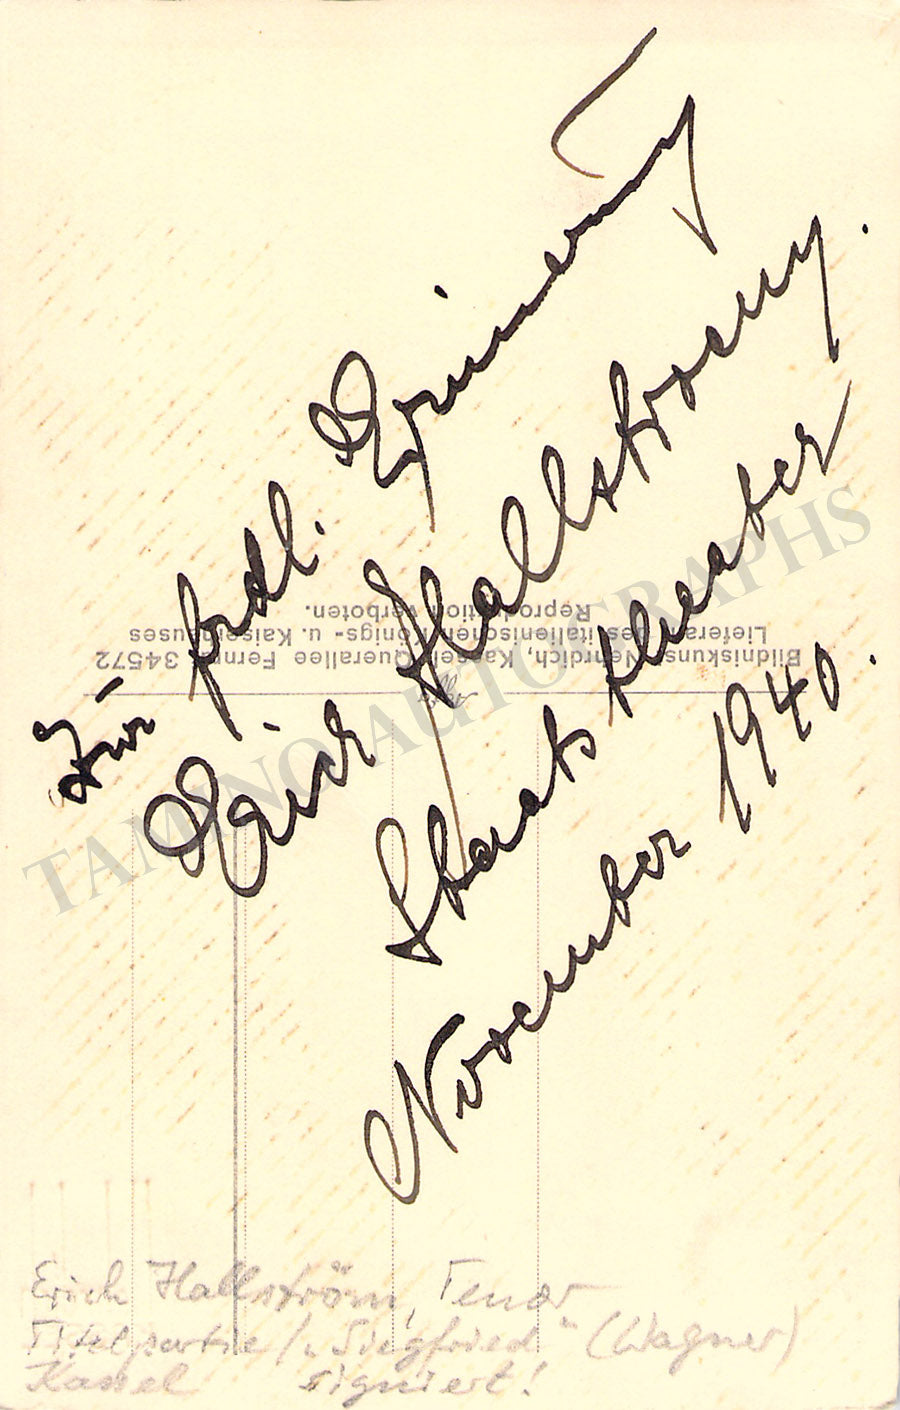 Zur frdl. Erinnerung
Erich Hallstroem.
Staatstheater
November 1940.
Bildniskunst Nehrdich, Kassel, Querallee Fernr. 34572
Lieferant des italienischen Königs- u. Kaiserhauses
Reproduktion verboten.
TAMINO AUTOGRAPHS
Erich Hallström, Tenor
Titelpartie / „Siegfried" (Wagner)
Kassel signiert!